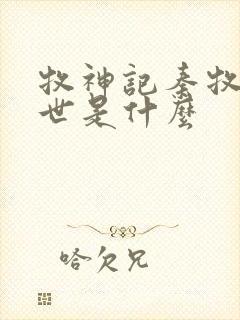 牧神記秦牧
世是什麼
哈欠兄